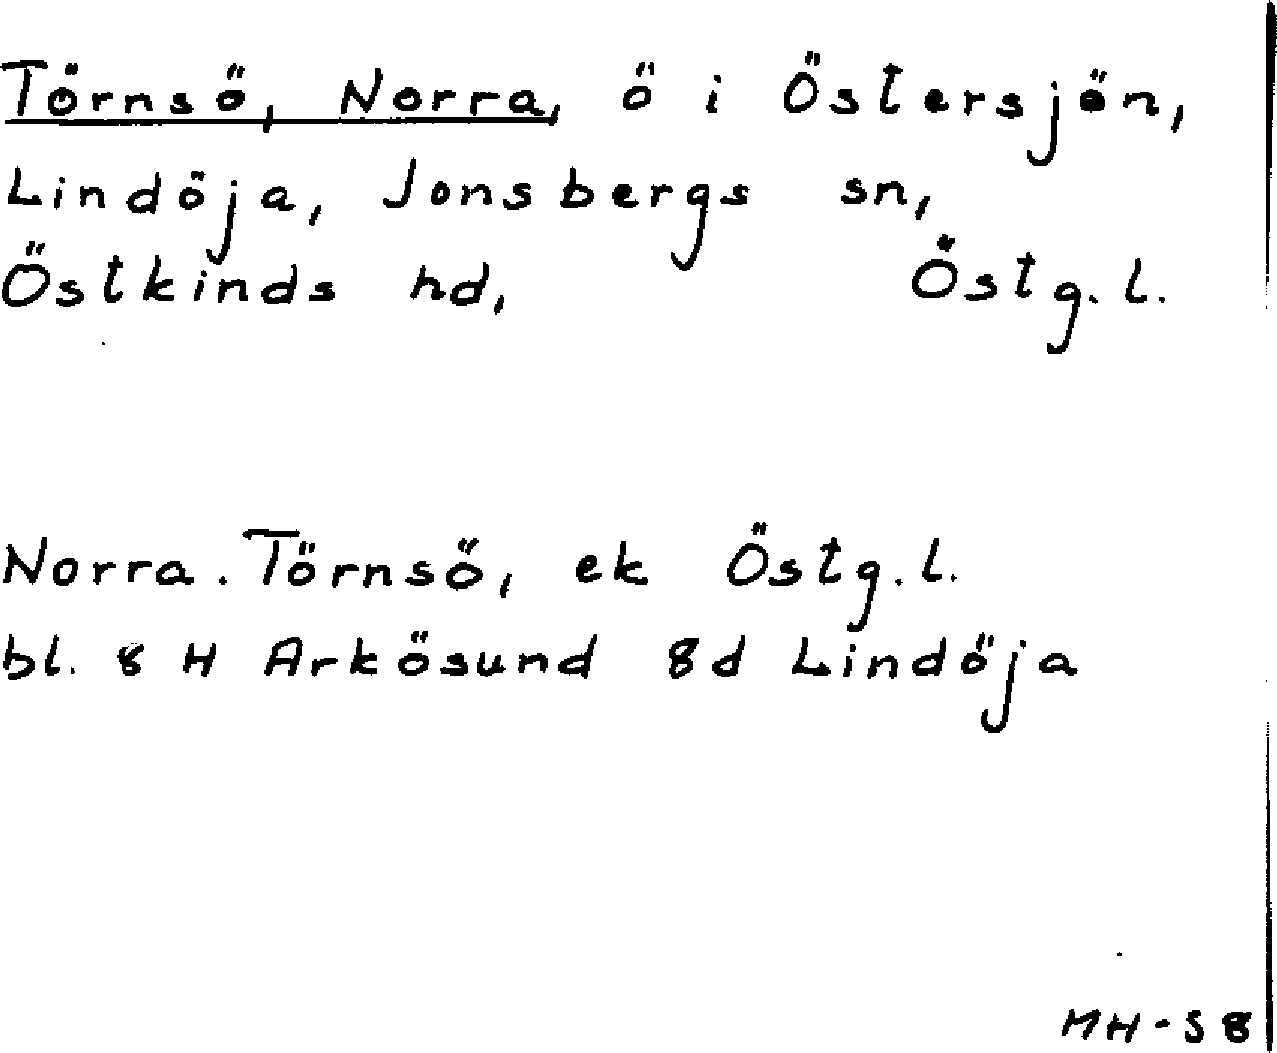 Törnsö, Norra, ö i Östersjön,
Lindöja, Jonsbergs sn,
Östkinds hd, Östg. l.
Norra Törnsö, ek Östg. l.
bl. 8 H Arkösund 8d Lindöja
MH-S8